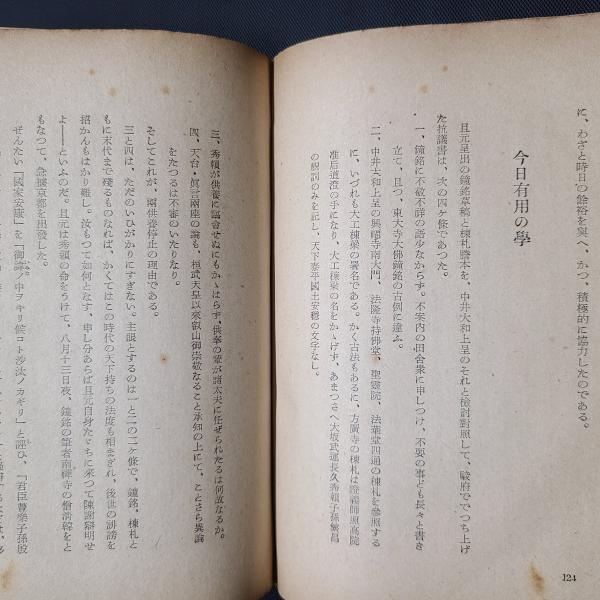 に、わざと時日の餘裕を與へ、かつ、積極的に協力したのである。
今日有用の學
且元呈出の鐘銘草稿と棟札謄本を、中井大和上呈のそれと檢討對照して、駿府ででつち上げ
た抗議書は、次の四ケ條であつた。
一、鐘銘に不敬不祥の語少なからず。不案内の田舍衆に申しつけ、不要の事ども長々と書き
立て、且つ、東大寺大佛鐘銘の古例に違ふ。
二、中井大和上呈の興福寺南大門、法隆寺持佛堂、聖靈院、法華堂四通の棟札を參照する
に、いづれも大工棟梁の署名である。かく古法もあるに、方廣寺の棟札は證義師照高院
准后道澄の手になり、大工棟梁の名をかゝげず、あまつさへ大坂武運長久秀賴子孫繁昌
の祝詞のみを記し、天下泰平國土安穩の文字なし。
三、秀賴が供養に臨會せぬにもかゝはらず、供奉の輩が諸太夫に任ぜられたるは何故なるか。
四、天台・眞言兩座の論も、桓武天皇以來叡山御崇敬なること承知の上にて、ことさら異論
をたつるは不審のいたりなり。
そしてこれが、兩供養停止の理由である。
三と四は、ただのいひがかりにすぎない。主眼とするのは一と二の二ケ條で、鐘銘、棟札と
もに末代まで殘るものなれば、かくてはこの時代の天下持ちの法度も相まぎれ、後世の誹謗を
招かんもはかり難し。汝もつて如何となす、申し分あらば且元自身たゞちに來つて陳謝辯明せ
よ――といふのだ。且元は秀賴の命をうけて、八月十三日夜、鐘銘の筆者南禪寺の僧淸韓をと
もなつて、急遽京都を出發した。
ぜんたい「國家安康」を「御諱ノ中ヲキリ候コト沙汰ノカギリ」と誣ひ、「君臣豐樂子孫殷
124